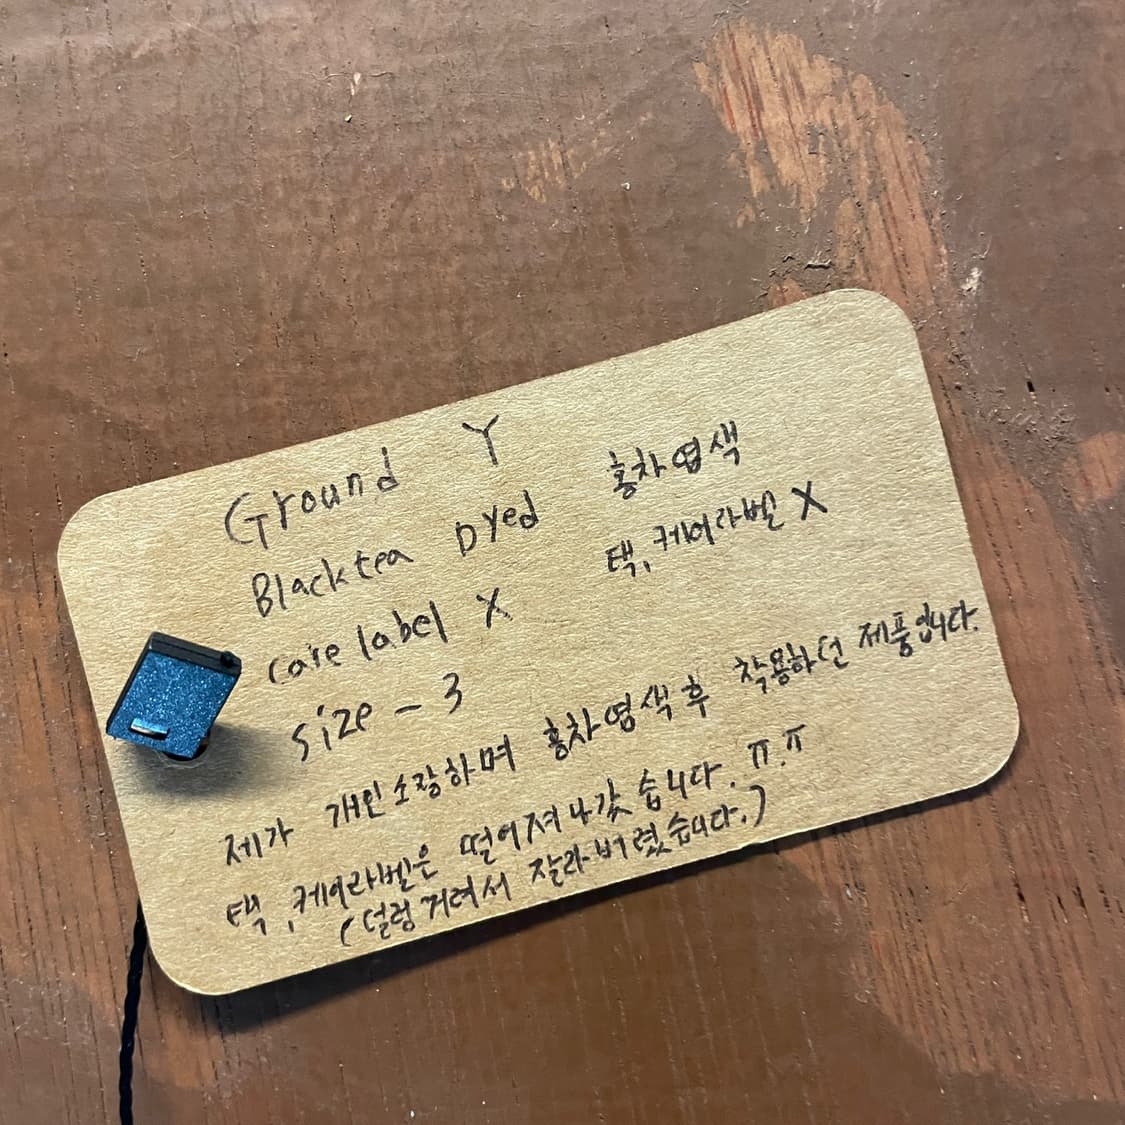 Ground Y
Blacktea Dyed 홍차염색
care label X 택, 케어라벨 X
size - 3
제가 개인소장하며 홍차염색 후 착용하던 제품입니다.
택, 케어라벨은 떨어져 나갔습니다. ㅠ.ㅠ
(덜렁거려서 잘라버렸습니다.)